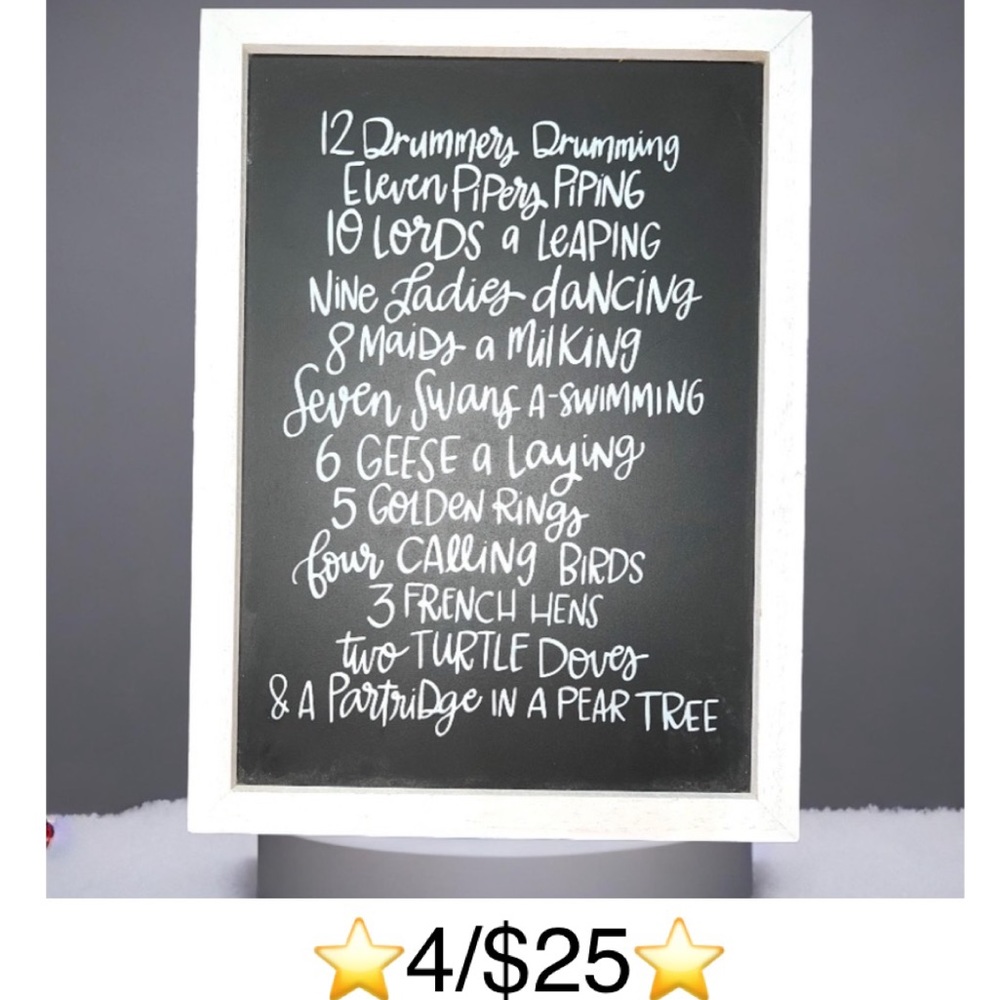 12 Drummers Drumming
Eleven PiPers PiPiNG
10 LorDS a LeAPING
NiNe Ladies daNCiNg
8 MaiDs a MilKiNg
Seven Swans A-SWIMMING
6 GEESE a Laying
5 GOLDEN RiNgs
four CAlliNg BIRDS
3 FRENCH HENS
two TURTLE Doves
& A PartriDge IN A PEAR TREE
⭐4/$25⭐